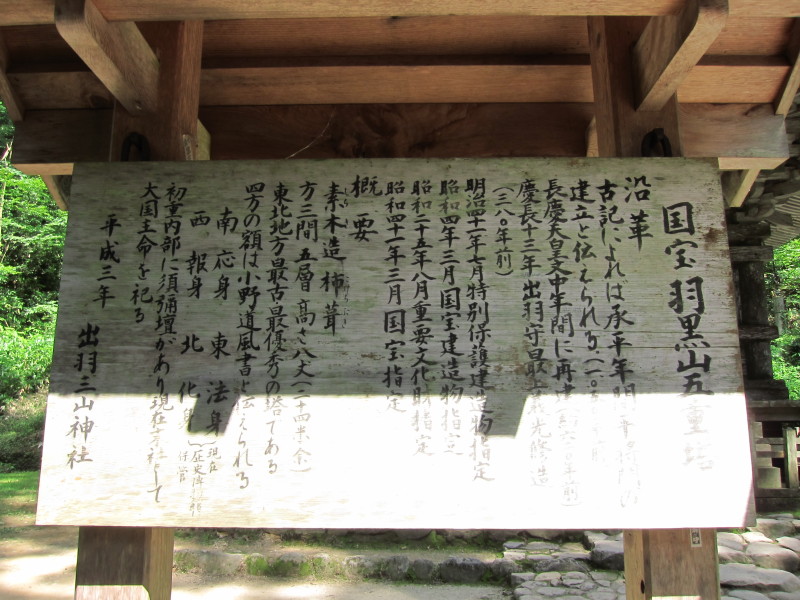 国宝 羽黒山五重塔
沿革
古記によれば承平年間平将門の
建立と伝えられる、(一〇五〇年前)
長慶天皇文中年間に再建(約六〇〇年前)
慶長十三年 出羽守最上義光修造
(三八〇年前)
明治四十一年七月特別保護建造物指定
昭和四年三月国宝建造物指定
昭和二十五年八月重要文化財指定
昭和四十一年三月国宝指定
概要
素木造 杮葺
方三間 五層 高さ八丈(二十四米余)
東北地方最古最優秀の塔である
四方の額は小野道風書と伝えられる
南 応身 東 法身
西 報身 北 化身
初重内部に須彌壇があり現在末社として
大国主命を祀る
平成三年
出羽三山神社